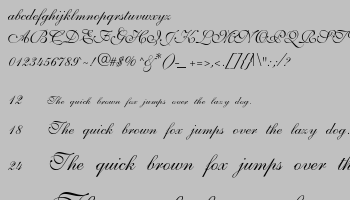 abcdefghijklmnopqrstuvwxyz
ABCDEFGHIJKLMNOPQRST
0123456789~!@#$%^&*()-_+=>,<.[]{}/\":;/?
12 The quick brown fox jumps over the lazy dog.
18 The quick brown fox jumps over the lazy dog.
24 The quick brown fox jumps over th